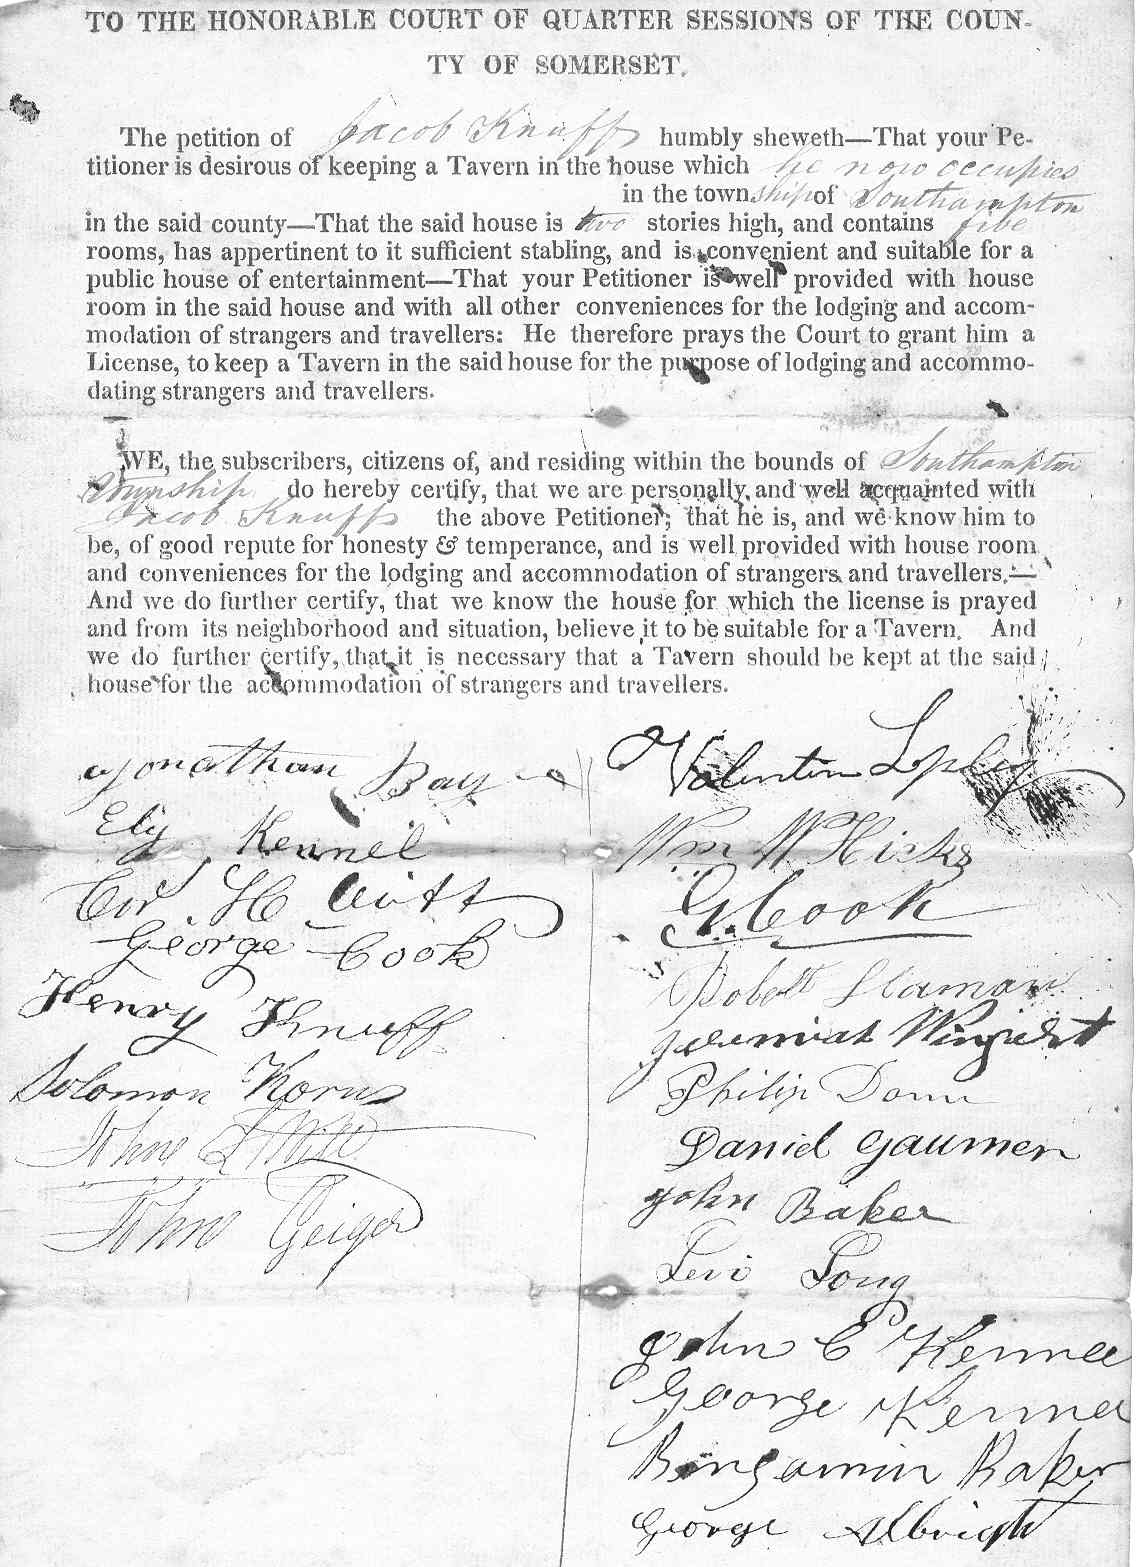 TO THE HONORABLE COURT OF QUARTER SESSIONS OF THE COUN-
TY OF SOMERSET.
The petition of Jacob Knuff humbly sheweth—That your Pe-
titioner is desirous of keeping a Tavern in the house which he now occupies
in the township of Southampton
in the said county—That the said house is two stories high, and contains five
rooms, has appertinent to it sufficient stabling, and is convenient and suitable for a
public house of entertainment—That your Petitioner is well provided with house
room in the said house and with all other conveniences for the lodging and accom-
modation of strangers and travellers: He therefore prays the Court to grant him a
License, to keep a Tavern in the said house for the purpose of lodging and accommo-
dating strangers and travellers.
WE, the subscribers, citizens of, and residing within the bounds of Southampton
Township do hereby certify, that we are personally and well acquainted with
Jacob Knuff the above Petitioner; that he is, and we know him to
be, of good repute for honesty & temperance, and is well provided with house room
and conveniences for the lodging and accommodation of strangers and travellers.—
And we do further certify, that we know the house for which the license is prayed
and from its neighborhood and situation, believe it to be suitable for a Tavern. And
we do further certify, that it is necessary that a Tavern should be kept at the said
house for the accommodation of strangers and travellers.
Jonathan Bay
Ely Kennel
George Cook
Henry Knuff
Solomon Korns
John L Witt
John Geiger
Valentin Lepley
Wm W Hicks
G. Cook
Robert
Jeremiah
Philip
Daniel Gaumer
John Baker
Levi Long
John C Kennel
George Kennel
Bengamin Baker
George Albright